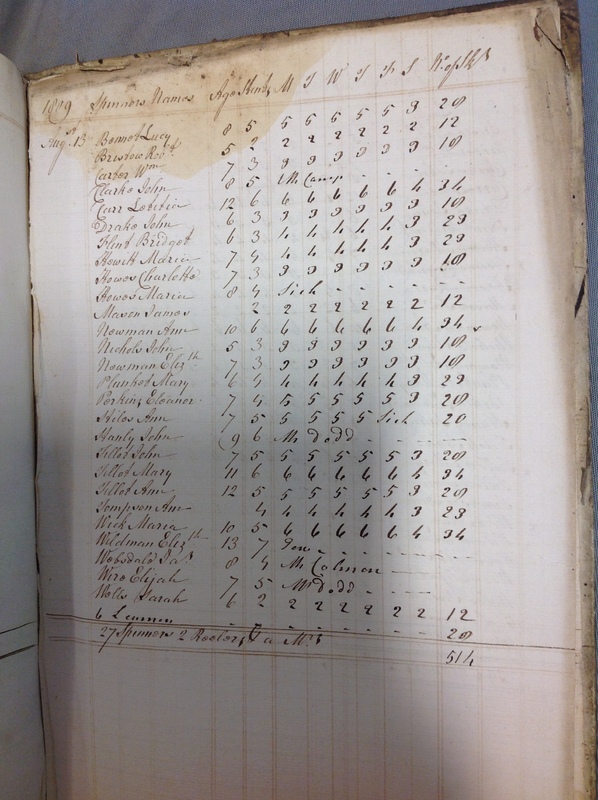 1809 Spinners Names Age Stint M T W T F S No of Sks
Augst 13 Bennet Lucy 8 5 5 5 5 5 5 3 28
Bristow Robt 5 2 2 2 2 2 2 2 12
Carter Wm 7 3 3 3 3 3 3 3 18
Clarke John 8 5 Mr Camp
Carr Letitia 12 6 6 6 6 6 6 4 34
Drake John 6 3 3 3 3 3 3 3 18
Flint Bridget 6 3 4 4 4 4 4 3 23
Howett Maria 7 4 4 4 4 4 4 3 23
Howes Charlotte 7 3 3 3 3 3 3 3 18
Howes Maria 8 4 Sick - - - - -
Mason James 2 2 2 2 2 2 2 12
Newman Ann 10 6 6 6 6 6 6 4 34
Nichols John 5 3 3 3 3 3 3 3 18
Newman Elizth 7 3 3 3 3 3 3 3 18
Plunket Mary 6 4 4 4 4 4 4 3 23
Perkins Eleanor 7 4 5 5 5 5 5 3 28
Stiles Ann 7 5 5 5 5 5 Sick - 20
Stanly John 9 6 Mr Dodd - - - -
Tillot John 7 5 5 5 5 5 5 3 28
Tillot Mary 11 6 6 6 6 6 6 4 34
Tillot Ann 12 5 5 5 5 5 5 3 28
Tompson Ann 4 4 4 4 4 4 3 23
Wick Maria 10 5 6 6 6 6 6 4 34
Wildman Elizth 13 7 - - - - -
Websdale Jas 8 4 Mr Colman - - -
Wire Elijah 7 5 Mr Dodd - - -
Wells Sarah 6 2 2 2 2 2 2 2 12
6 - - - - - - 28
27 Spinners 2 Reelers & a Mrs
514